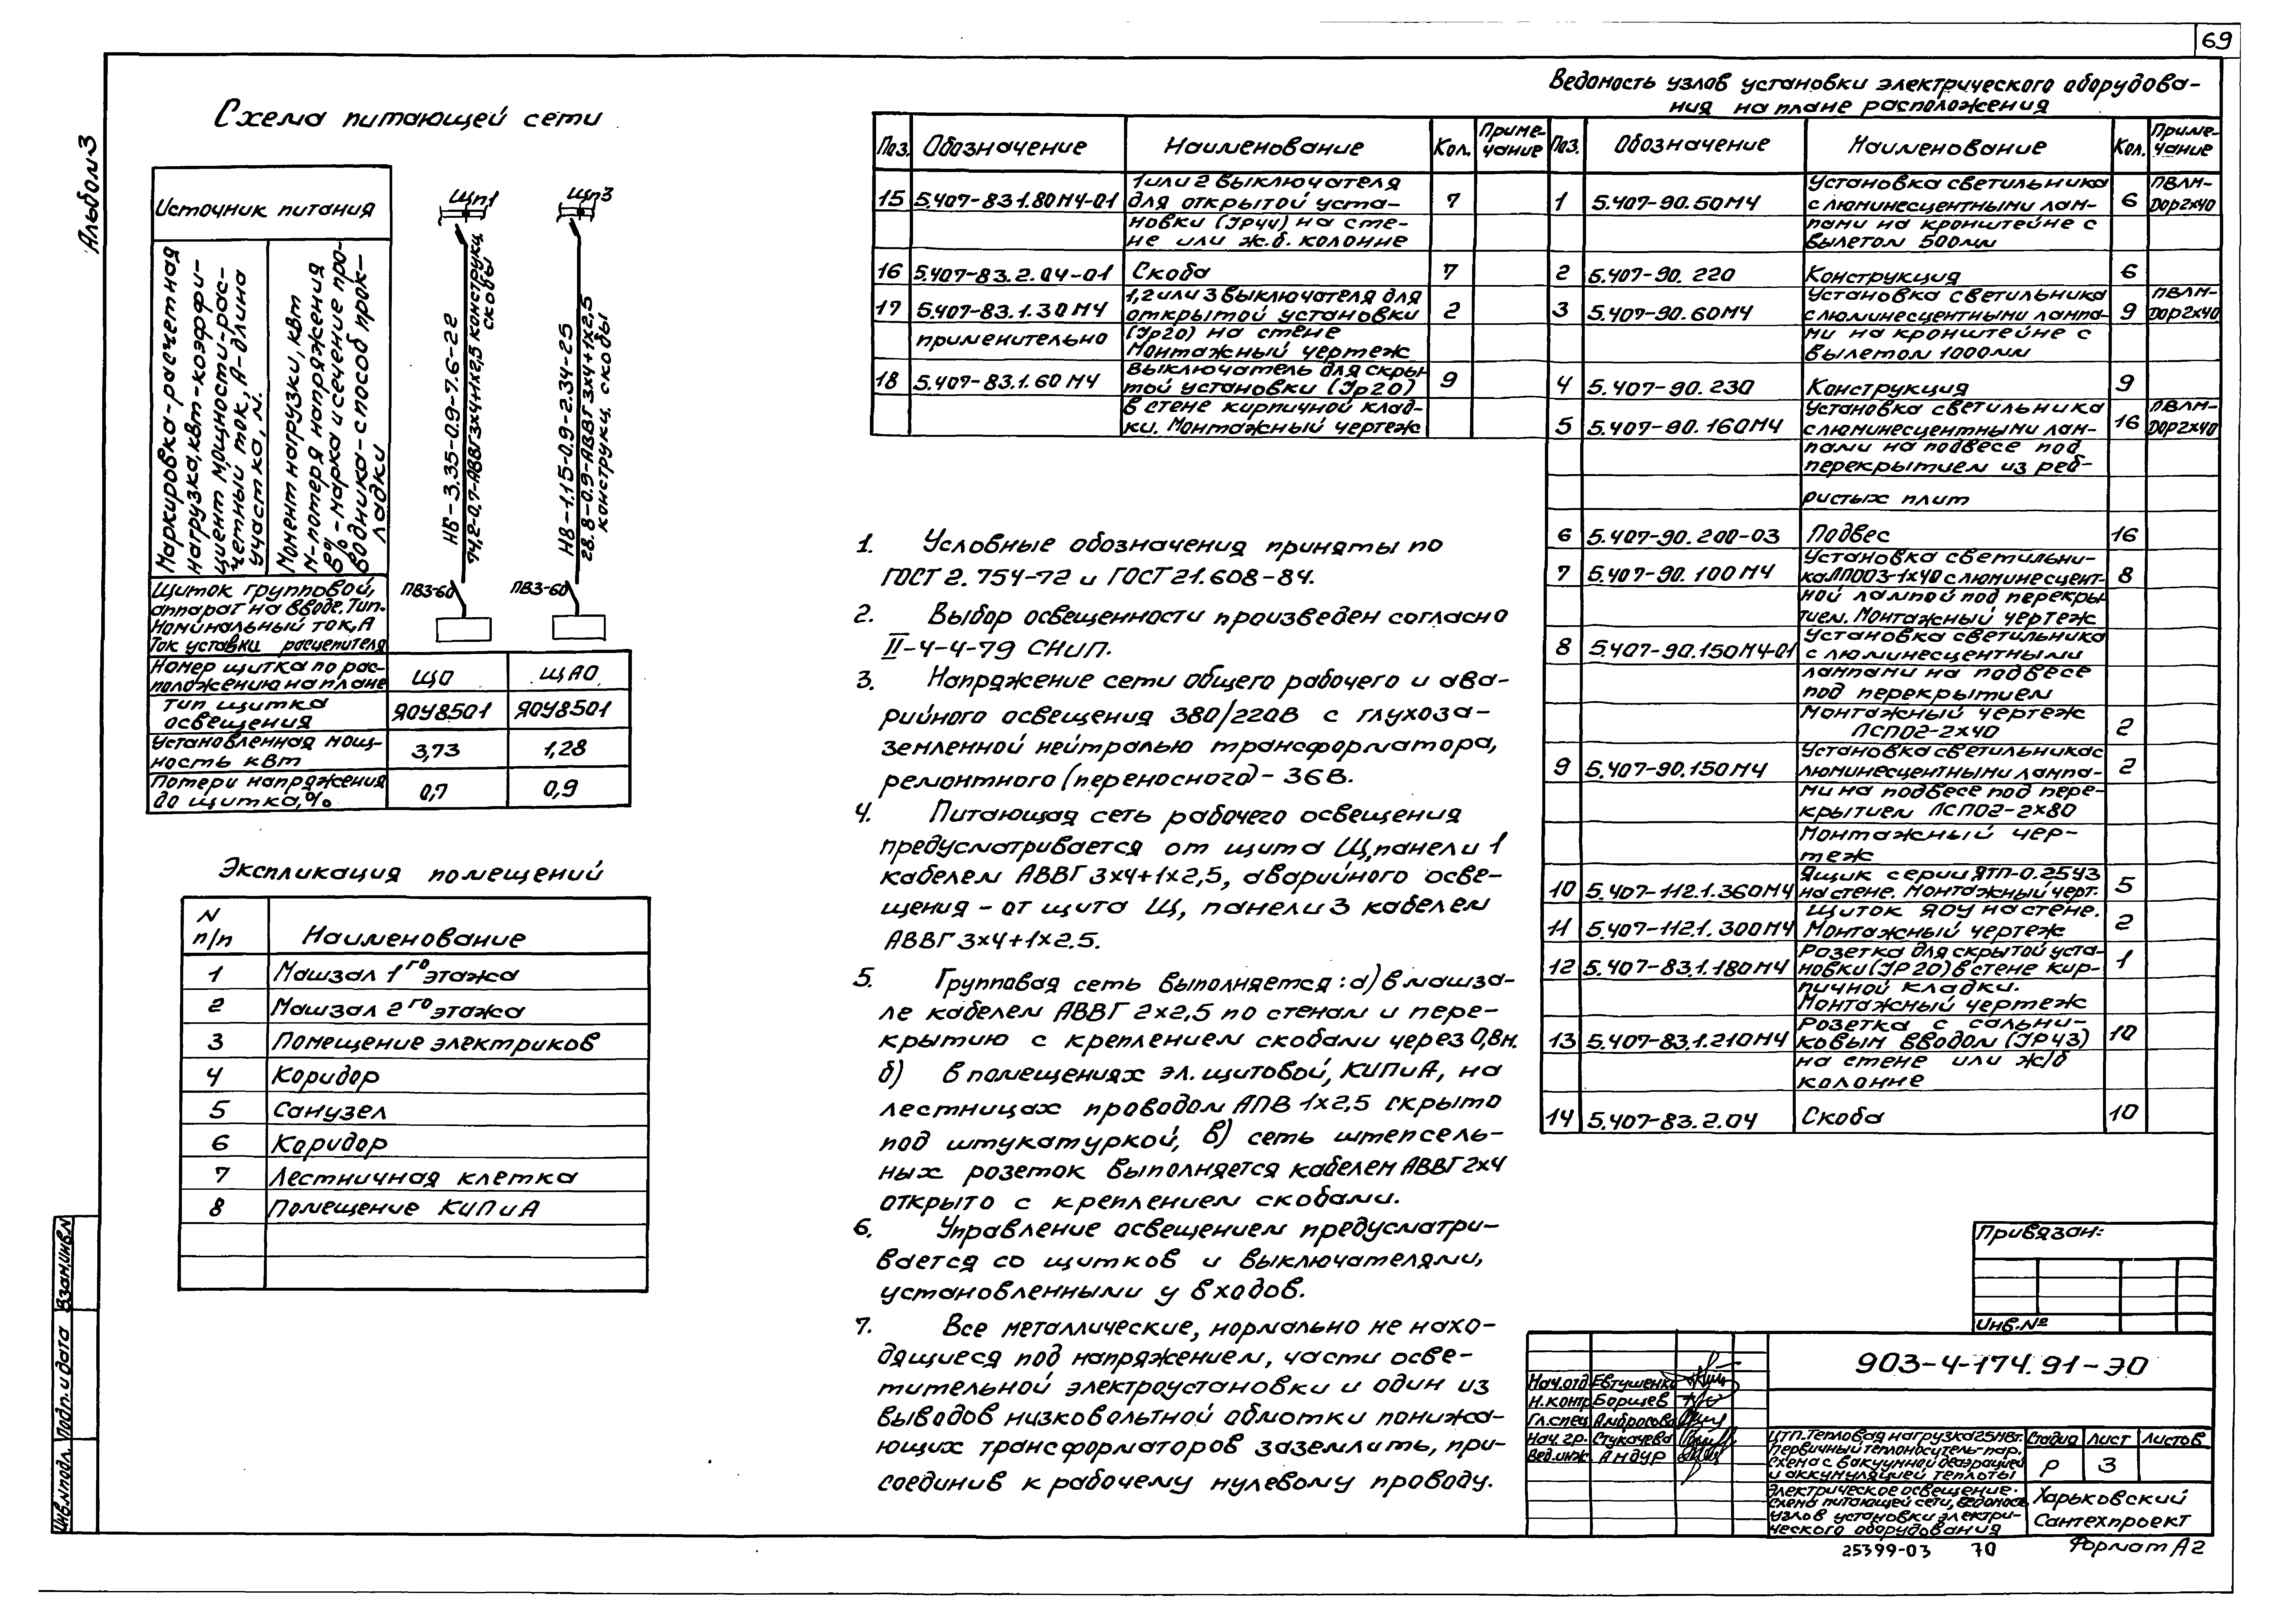 69
Альбом 3
Схема питающей сети
Источник питания
Маркировка-расчетная
нагрузка, квт-коэффи-
циент мощности-рас-
четный ток, А-длина
участка, м.
Момент нагрузки, кВт
м-потеря напряжения
в%-марка и сечение про-
водника-способ прок-
ладки
Щп1
Щп3
Н8-3,35-0.9-7.6-22
74,2-0,7-АВВГ3х4+1х2,5 конструкц.
скобы
Н8-1.15-0.9-2.34-25
28.8-0.9-АВВГ3х4+1х2,5
конструкц. скобы
Щиток групповой,
аппарат на вводе. Тип.
Номинальный ток, А
Ток уставки расцепителя
ПВ3-60
ПВ3-60
Номер щитка по рас-
положению на плане
ЩО
ЩАО
Тип щитка
освещения
ЯОУ8501
ЯОУ8501
Установленная мощ-
ность кВт
3,73
1,28
Потери напряжения
до щитка,%
0,7
0,9
Экспликация помещений
N
п/п
Наименование
1 Машзал 1го этажа
2 Машзал 2го этажа
3 Помещение электриков
4 Коридор
5 Санузел
6 Коридор
7 Лестничная клетка
8 Помещение КИПиА
Ведомость узлов установки электрического оборудова-
ния на плане расположения
Поз. Обозначение Наименование Кол. Приме-
чание
15 5.407-83 1.80МЧ-01 1или 2 выключателя 7
для открытой уста-
новки (Jр44) на сте-
не или ж.б. колонне
16 5.407-83.2.04-01 Скоба 7
17 5.407-83.1.30МЧ 1,2или 3 выключателя для 2
открытой установки
применительно (Jр20) на стене
Монтажный чертеж
18 5.407-83.1.60МЧ Выключатель для скры 9
той установки (Jр20)
в стене кирпичной клад-
ки. Монтажный чертеж
Поз. Обозначение Наименование Кол. Приме-
чание
1 5.407-90.50МЧ Установка светильника 6 ПВЛМ-
с люминесцентными лам- DОР2х40
пами на кронштейне с
вылетом 500мм
2 5.407-90.220 Конструкция 6
3 5.407-90.60МЧ Установка светильника 9 ПВЛМ-
с люминесцентными лампа- DОР2х40
ми на кронштейне с
вылетом 1000мм
4 5.407-90.230 Конструкция 9
5 5.407-90.160МЧ Установка светильника 16 ПВЛМ-
с люминесцентными лам- DОР2х40
пами на подвесе под
перекрытием из реб-
ристых плит
6 5.407-90.200-03 Подвес 16
7 5.407-90.100МЧ Установка светильни- 8
ка ЛПО03-1х40 с люминесцент-
ной лампой под перекры
тием. Монтажный чертеж
8 5.407-90.150МЧ-01 Установка светильника
с люминесцентными
лампами на подвесе
под перекрытием
Монтажный чертеж
ЛСП02-2х40 2
9 5.407-90.150МЧ Установка светильника с 2
люминесцентными лампа-
ми на подвесе под пере-
крытием ЛСП02-2х80
Монтажный чер-
теж
10 5.407-112.1.360МЧ Ящик серии ЯТП-0.25У3 5
на стене. Монтажный черт.
11 5.407-112.1.300МЧ Щиток ЯОУ на стене. 2
Монтажный чертеж
12 5.407-83.1.180МЧ Розетка для скрытой уста- 1
новки (JР20) в стене кир-
пичной кладки.
Монтажный чертеж
13 5.407-83.1.210МЧ Розетка с сальни- 10
ковым вводом (JР43)
на стене или ж/б
колонне
14 5.407-83.2.04 Скоба 10
1. Условные обозначения приняты по
ГОСТ 2.754-72 и ГОСТ 21.608-84.
2. Выбор освещенности произведен согласно
II-4-4-79 СНиП.
3. Напряжение сети общего рабочего и ава-
рийного освещения 380/220В с глухоза-
земленной нейтралью трансформатора,
ремонтного (переносного)-36В.
4. Питающая сеть рабочего освещения
предусматривается от щита Щ,панели 1
кабелем АВВГ 3х4+1х2,5, аварийного осве-
щения-от щита Щ, панели 3 кабелем
АВВГ 3х4+1х2.5.
5. Групповая сеть выполняется: а) в машза-
ле кабелем АВВГ 2х2,5 по стенам и пере-
крытию с креплением скобами через 0,8м.
б) в помещениях эл. щитовой, КИПиА, на
лестницах проводом АПВ 1х2,5 скрыто
под штукатуркой, в) сеть штепсель-
ных розеток выполняется кабелем АВВГ 2х4
открыто с креплением скобами.
6. Управление освещением предусматри-
вается со щитков и выключателями,
установленными у входов.
7. Все металлические, нормально не нахо-
дящиеся под напряжением, части осве-
тительной электроустановки и один из
выводов низковольтной обмотки понижа-
ющих трансформаторов заземлить, при-
соединив к рабочему нулевому проводу.
Привязан:
Инв.№
903-4-174.91-ЭО
Нач.отд Евтушенко
Н.контр Борщев
Гл.спец Амбросова
Нач.гр. Стукачева
Вед.инж Андур
ЦТП. Тепловая нагрузка 25МВт.
Первичный теплоноситель-пар.
Схема с вакуумной деаэрацией
и аккумуляцией теплоты
Стадия Лист Листов
Р 3
Электрическое освещение.
Схема питающей сети, ведомость
узлов установки электри-
ческого оборудования
Харьковский
Сантехпроект
25399-03 70 Формат А2
Взам.инв.N
Подп. и дата
Инв.Nподл.